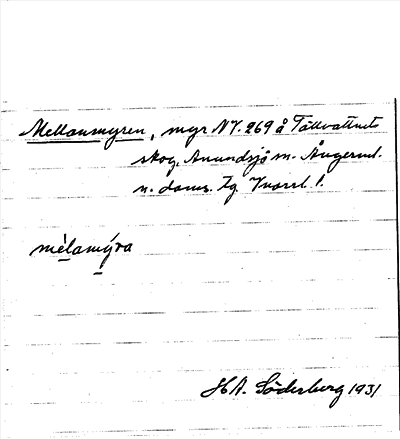 Mellanmyren, myr NV. 269 å Tällvattnets
skog, Anundsjö sn. Ångerml.
n. doms. tg. Vnorrl. l.
mèlamýra
H A. Söderberg 1931